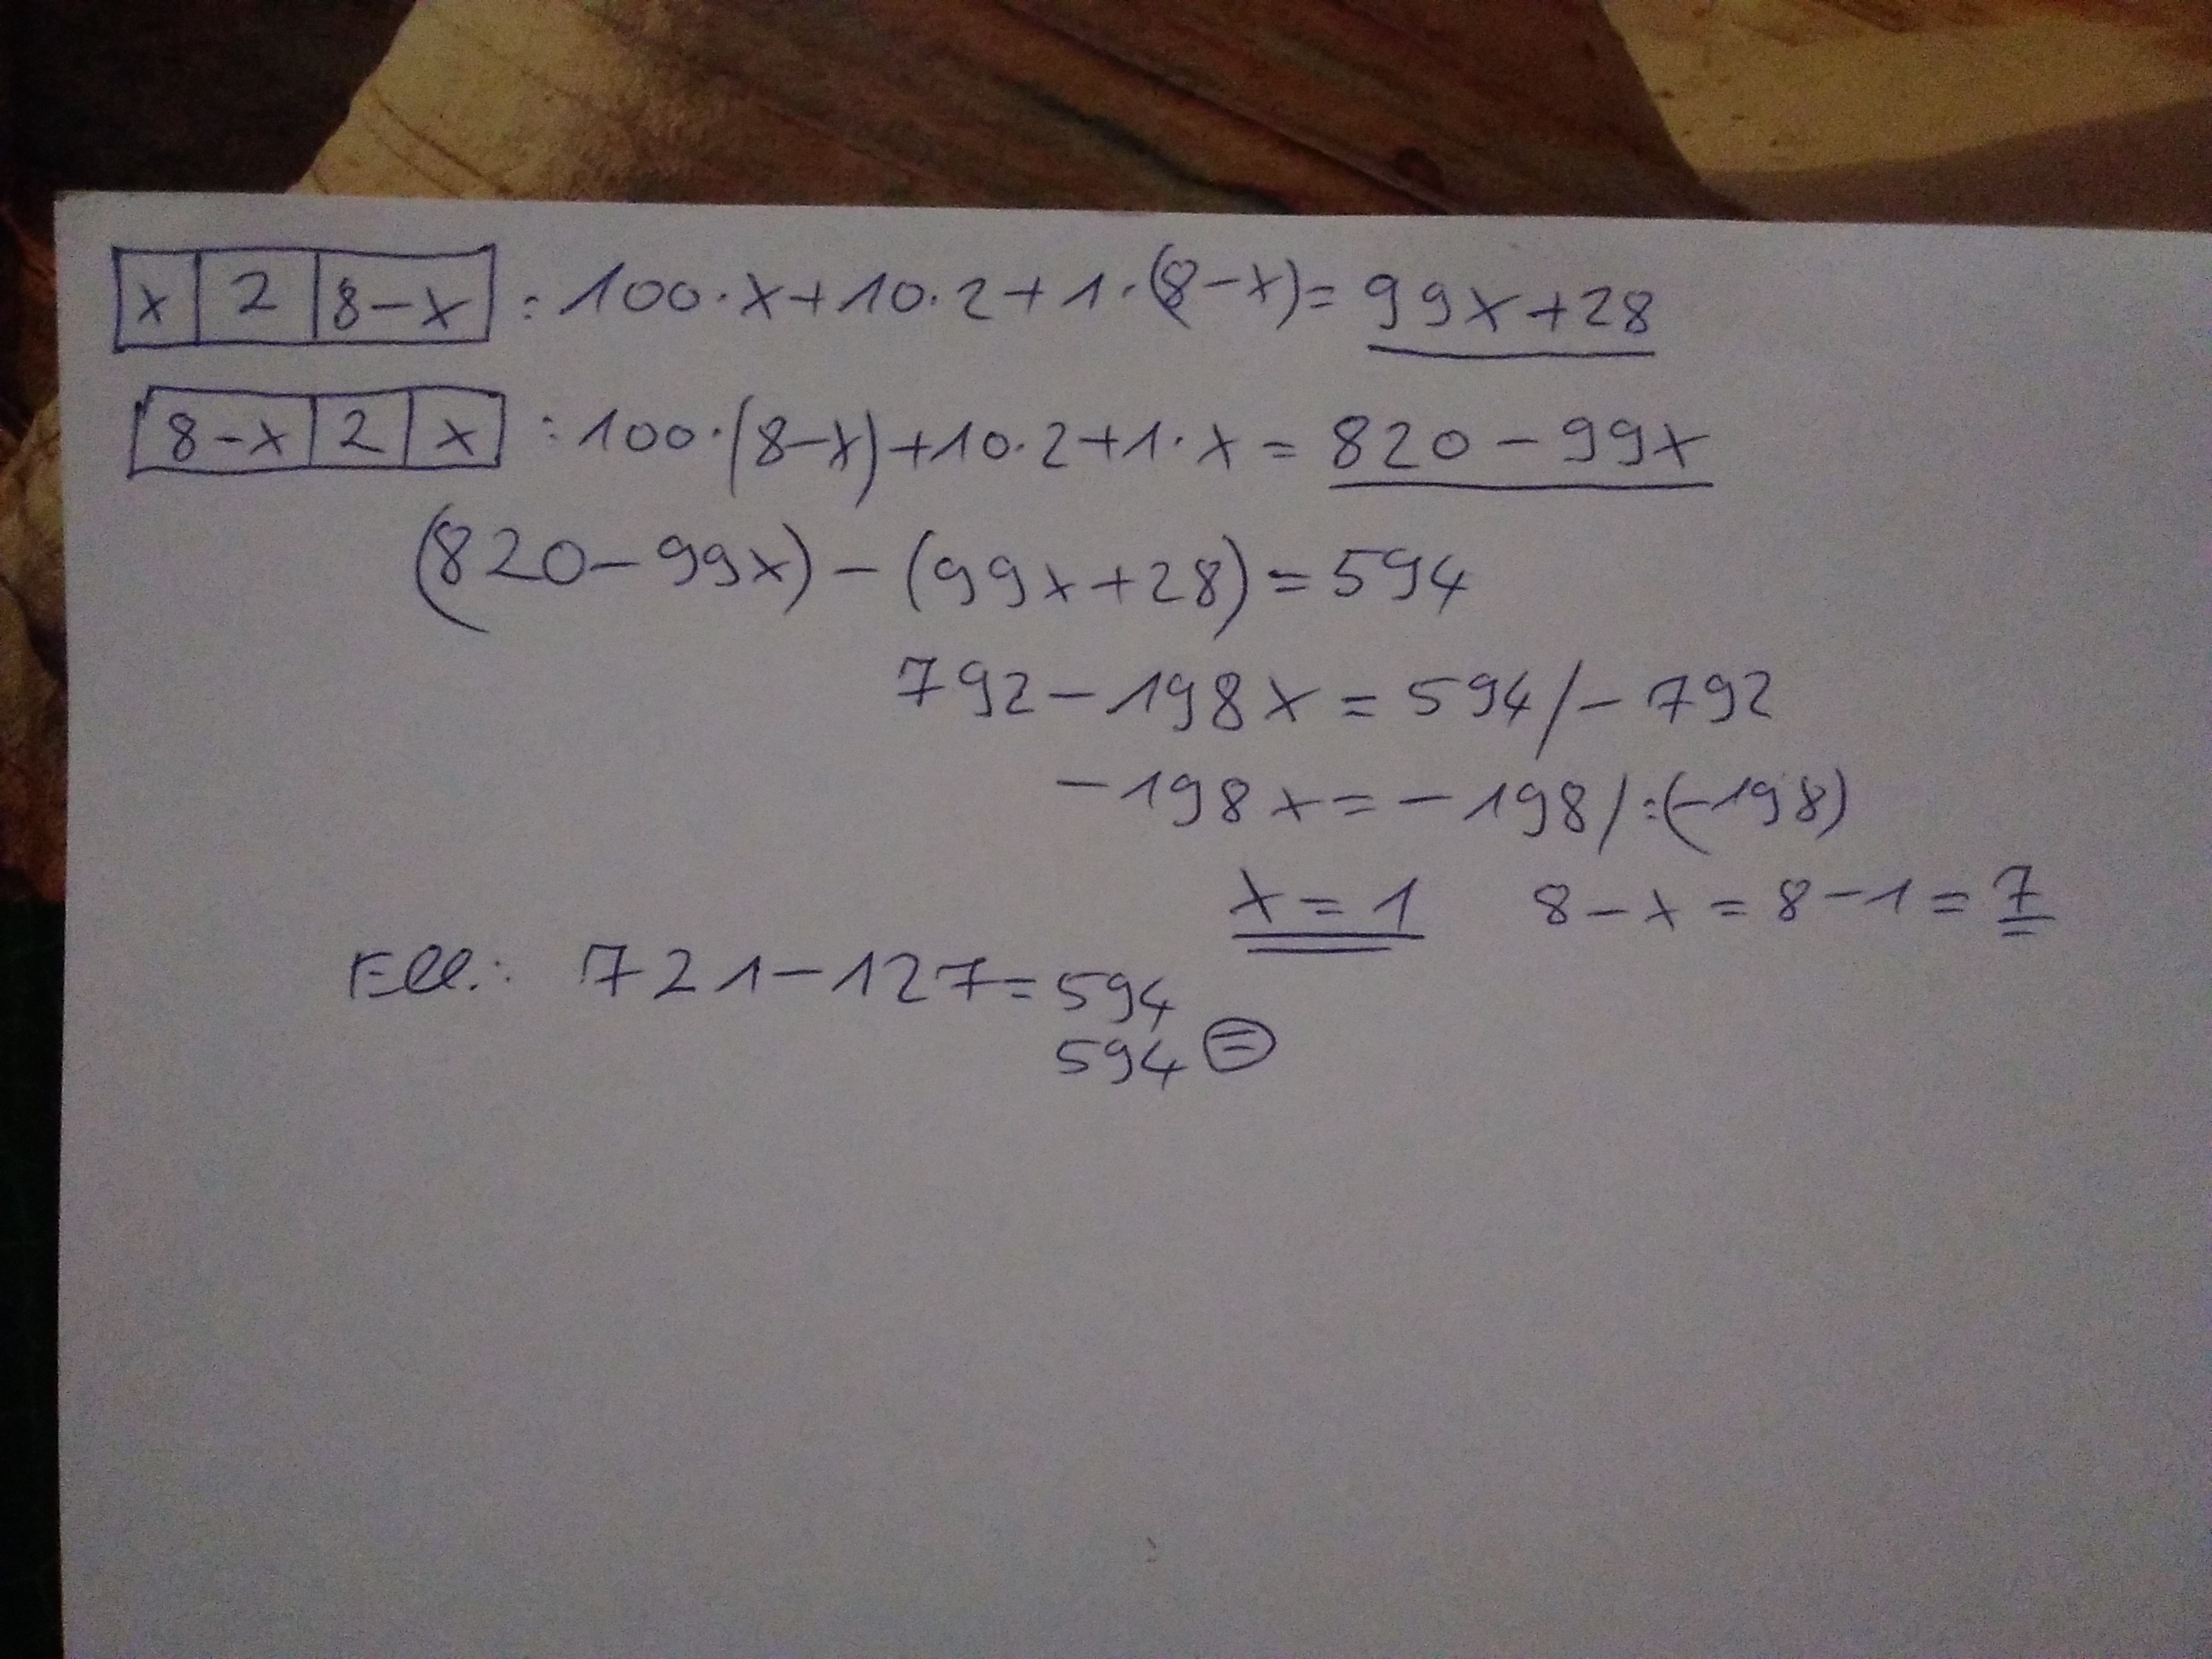 x | 2 | 8-x : 100·x+10·2+1·(8-x)= 99x+28
8-x | 2 | x : 100·(8-x)+10·2+1·x = 820-99x
(820-99x)-(99x+28)=594
792-198x=594/-792
-198x=-198/:(-198)
x=1 8-x=8-1=7
Ell.: 721-127=594
594 =